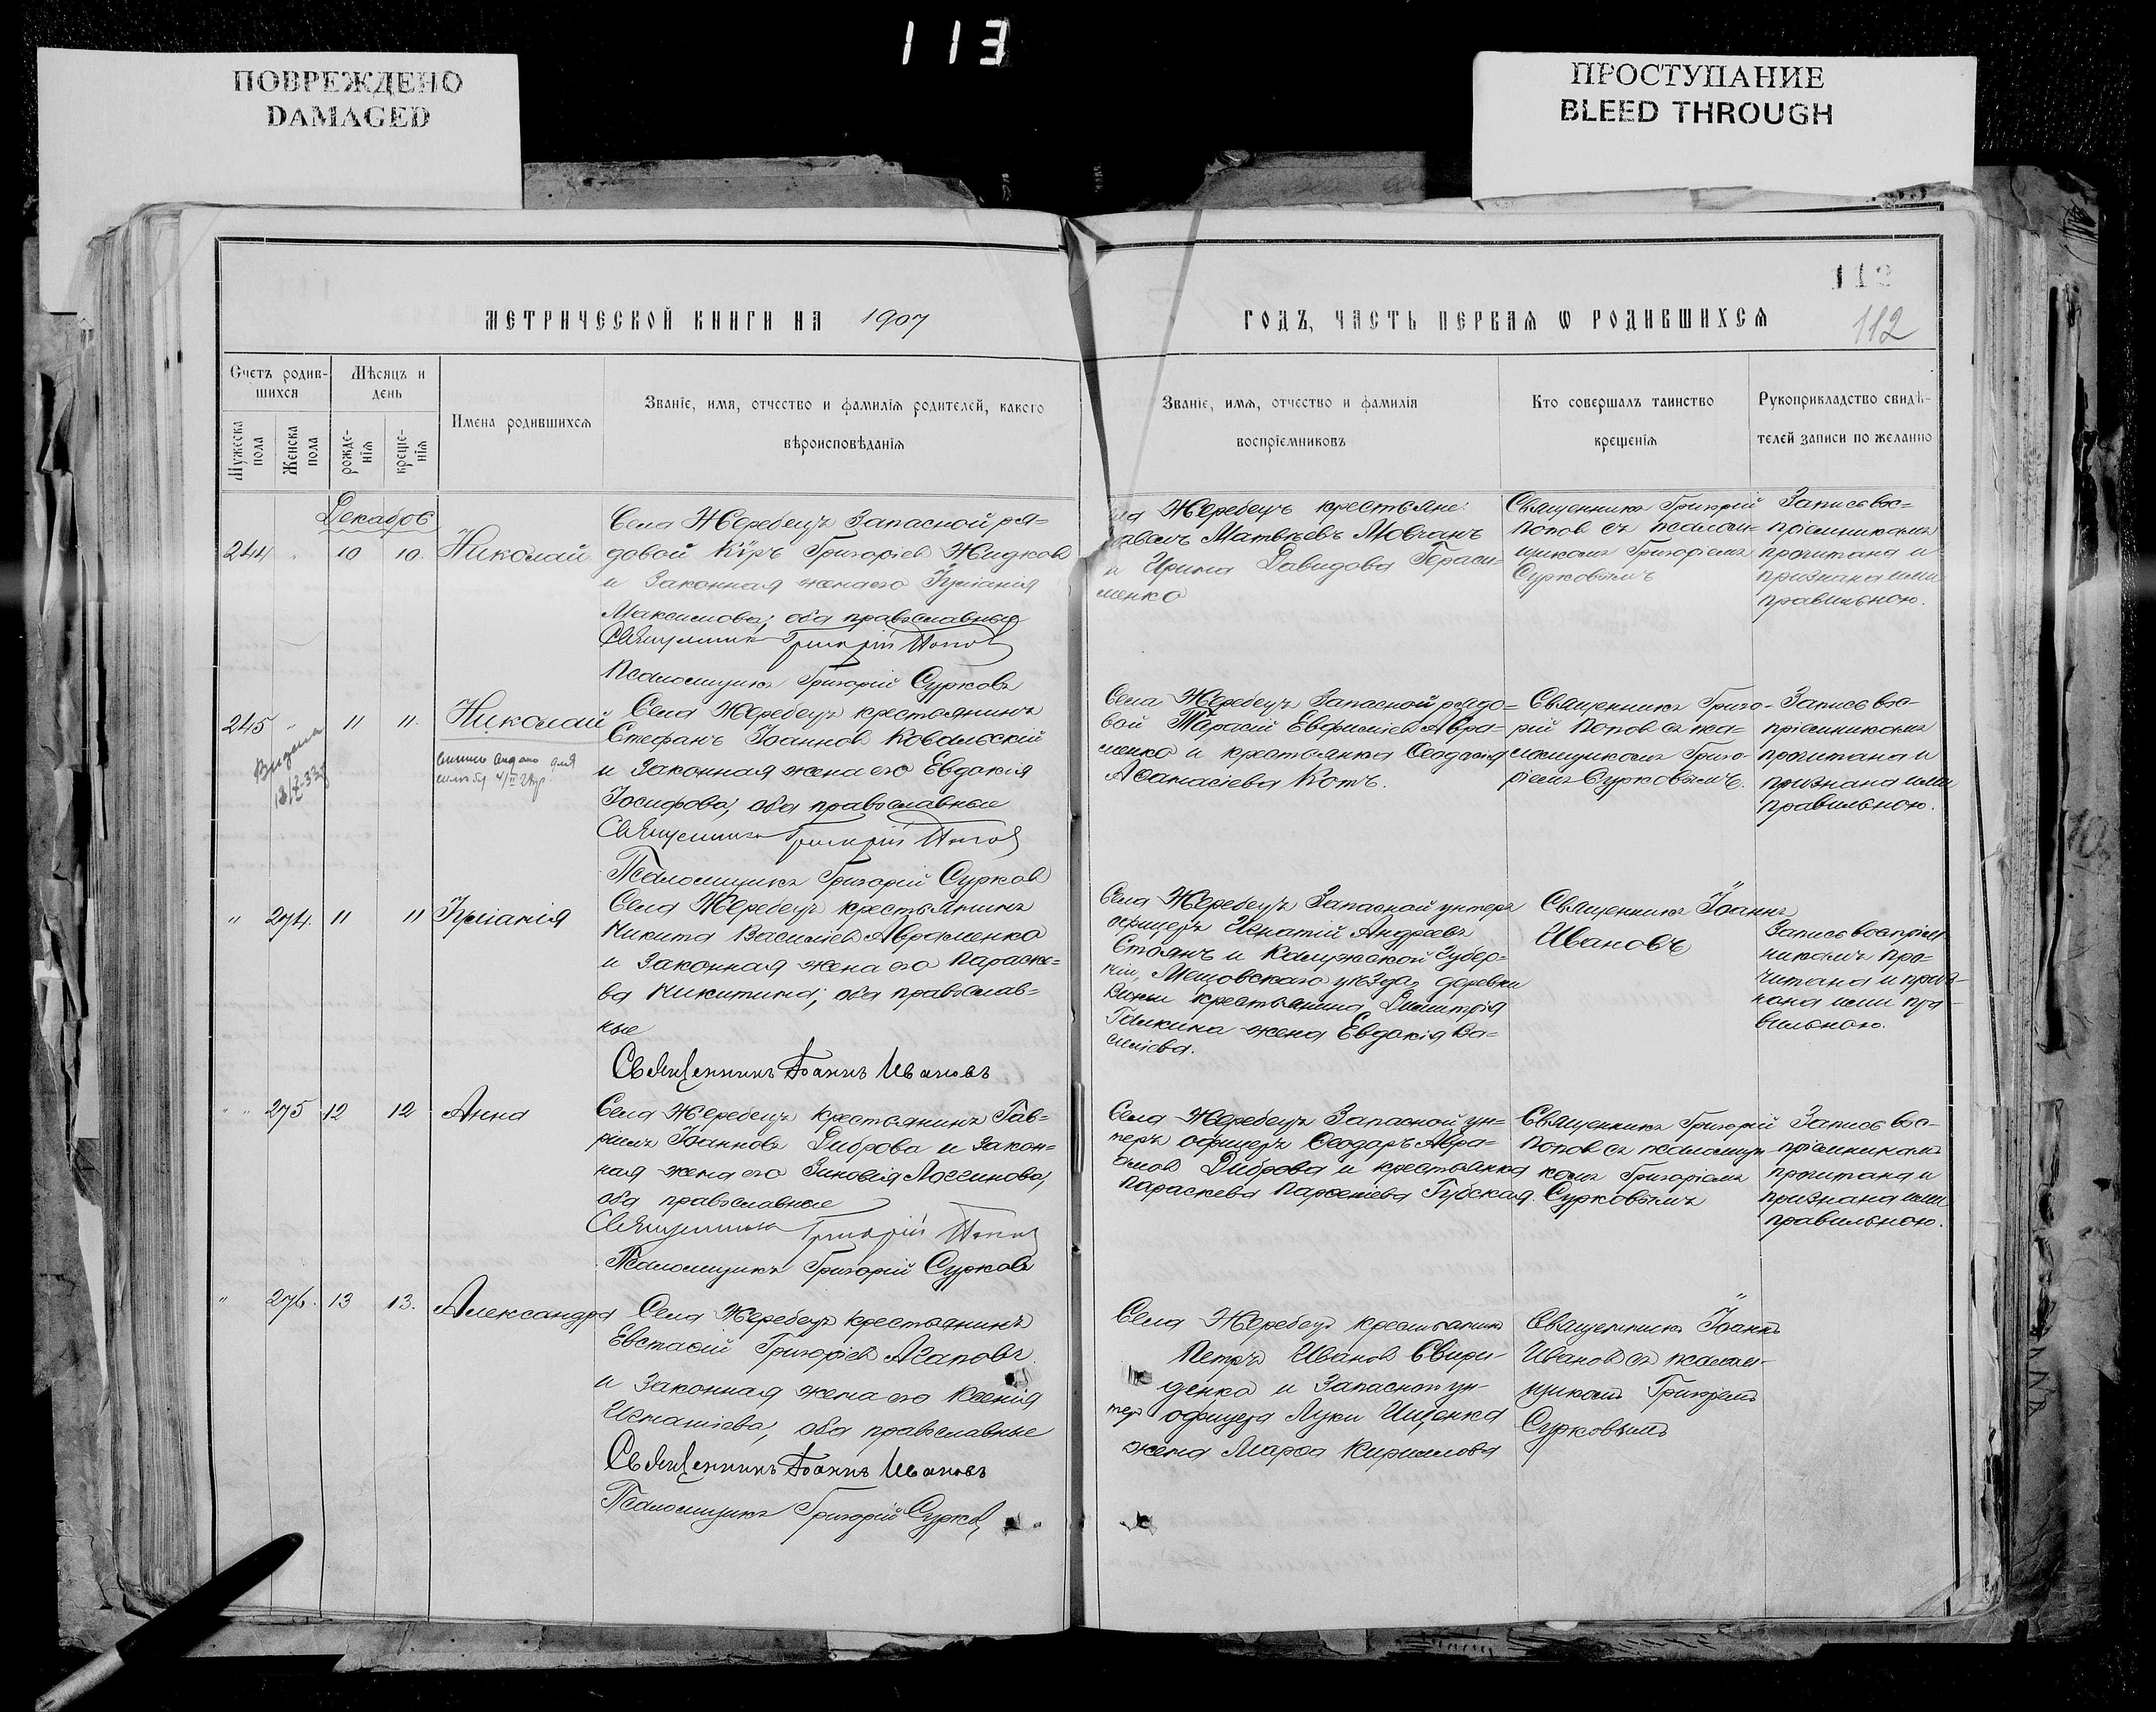 113
ПОВРЕЖДЕНО
DAMAGED
ПРОСТУПАНИЕ
BLEED THROUGH
112
МЕТРИЧЕСКОЙ КНИГИ НА 1907
ГОДЪ, ЧАСТЬ ПЕРВАЯ Ѡ РОДИВШИХСЯ
112
Счетъ родив-
шихся
Мужеска пола
Женска пола
Мѣсяцъ и
день
рожде-
нія
креще-
нія
Имена родившихся
Званіе, имя, отчество и фамилія родителей, какого
вѣроисповѣданія
Званіе, имя, отчество и фамилія
воспріемниковъ
Кто совершалъ таинство
крещенія
Рукоприкладство свидѣ-
телей записи по желанію
Декабрь
244 " 10 10. Николай
Села Жеребецъ Запасной ря-
довой Кѵръ Григоріевъ Жидковъ
и законная жена его Іуліанія
Максимова; оба православные
Священникъ Григорій Поповъ
Псаломщикъ Григорій Сурковъ
Жеребецъ крестьяне:
Матвѣевъ Мовчанъ
и Ирина Давидова Гераси-
менко
Священникъ Григорій
Поповъ съ псалом-
щикомъ Григоріемъ
Сурковымъ
Запись вос-
пріемниками
прочитана и
признана ими
правильною.
245 " 11 11. Николай
Села Жеребецъ крестьянинъ
Стефанъ Іоанновъ Ковальскій
и законная жена его Евдокія
Іосифова; оба православные
Священникъ Григорій Поповъ
Псаломщикъ Григорій Сурковъ
Села Жеребецъ Запасной рядо-
вой Тарасій Евфиміевъ Авра-
менко и крестьянка Ѳеодосія
Аѳанасіева Котъ.
Священникъ Григо-
рій Поповъ съ пса-
ломщикомъ Григо-
ріемъ Сурковымъ.
Запись вос-
пріемниками
прочитана и
признана ими
правильною.
" 274. 11 11 Іуліанія
Села Жеребецъ крестьянинъ
Никита Василіевъ Авраменко
и законная жена его Параске-
ва Никитина; оба православ-
ные
Священникъ Іоаннъ Ивановъ
Села Жеребецъ Запасной унтеръ
офицеръ Игнатій Андреевъ
Стоянъ и Калужской Губер-
ніи, Мещовскаго уѣзда, деревни
крестьянина Димитрія
Галкина жена Евдокія Ва-
силіева.
Священникъ Іоаннъ
Ивановъ
Запись воспріем-
никами про-
читана и приз-
нана ими пра-
вильною.
" " 275 12 12 Анна
Села Жеребецъ крестьянинъ Гав-
ріилъ Іоанновъ Диброва и закон-
ная жена его Зиновія Логгинова;
оба православные
Священникъ Григорій Поповъ
Псаломщикъ Григорій Сурковъ
Села Жеребецъ Запасной ун-
теръ офицеръ Ѳеодоръ Авра-
амовъ Диброва и крестьянка
Параскева Парѳеніева Губская.
Священникъ Григорій
Поповъ съ псаломщи-
комъ Григоріемъ
Сурковымъ
Запись вос-
пріемниками
прочитана и
признана ими
правильною.
" 276. 13 13. Александра
Села Жеребецъ крестьянинъ
Евстаѳій Григоріевъ Агаповъ
и законная жена его Ксенія
Игнатіева; оба православные
Священникъ Іоаннъ Ивановъ
Псаломщикъ Григорій Сурковъ
Села Жеребецъ крестьянинъ
Петръ Ивановъ Свири-
денко и Запаснаго ун-
теръ офицера Луки Ищенка
жена Марѳа Кириллова
Священникъ Іоаннъ
Ивановъ съ псалом-
щикомъ Григоріемъ
Сурковымъ